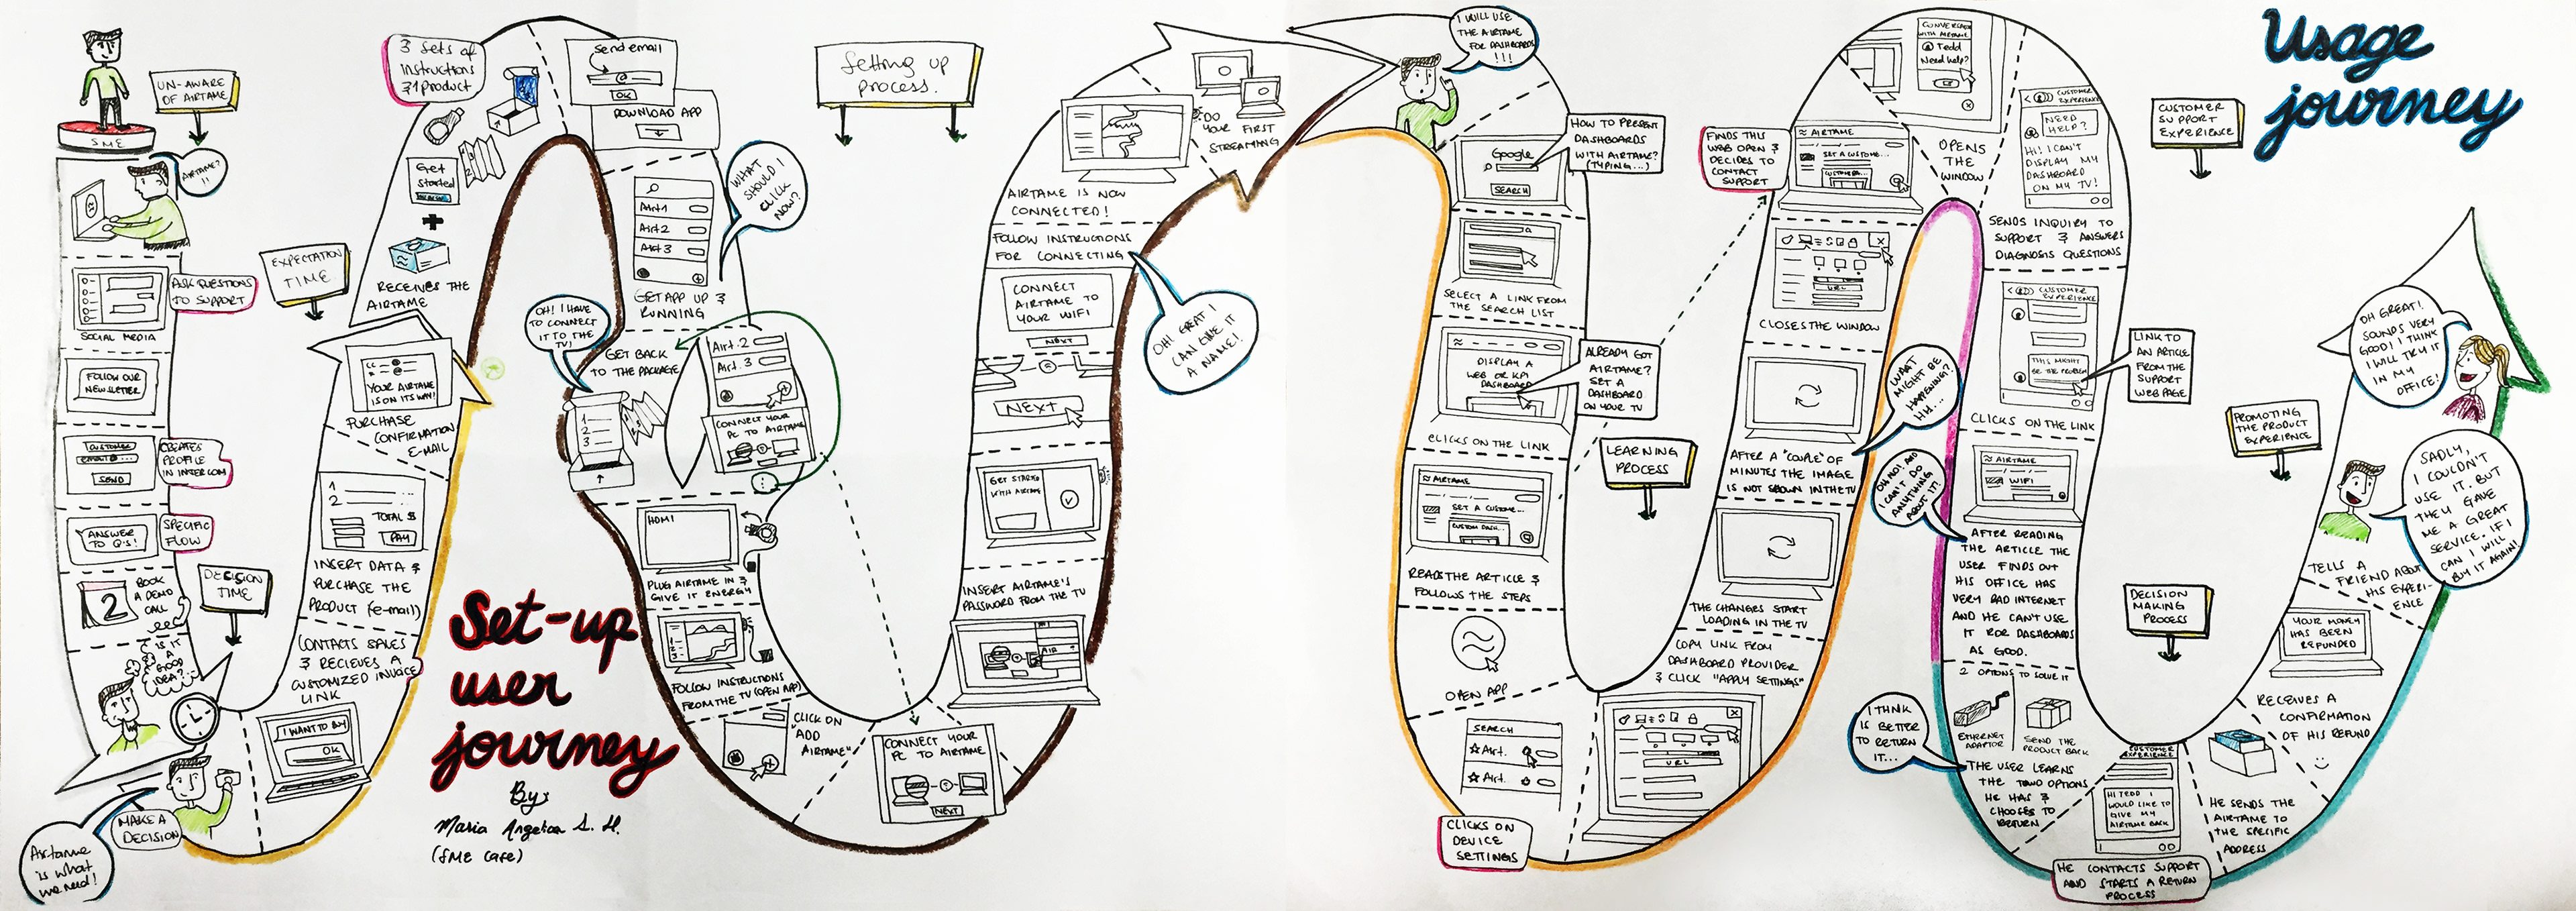 UN-AWARE
OF AIRTAME
SME
AIRTAME?
!!
ASK QUESTIONS
TO SUPPORT
SOCIAL MEDIA
FOLLOW OUR
NEWSLETTER
CUSTOMER
EMAIL
SEND
CREATES
PROFILE
IN INTERCOM
ANSWER
TO Q'S!
SPECIFIC
FLOW
2
BOOK
A DEMO
CALL
DECISION
TIME
IS IT
A
GOOD
IDEA?
MAKE A
DECISION
Airtame
is what
we need!
I WANT TO BUY
OK
CONTACTS SALES
& RECIEVES A
CUSTOMIZED INVOICE
LINK
INSERT DATA &
PURCHASE THE
PRODUCT (e-mail)
1
2
TOTAL $
PAY
PURCHASE
CONFIRMATION
E-MAIL
YOUR AIRTAME
IS ON ITS WAY!
EXPECTATION
TIME
RECEIVES THE
AIRTAME
+
Get
started
3 sets of
instructions
& 1 product
Send email
@
OK
DOWNLOAD APP
Airt 1
Airt 2
Airt 3
WHAT
SHOULD I
CLICK
NOW?
GET APP UP &
RUNNING
OH! I HAVE
TO CONNECT
IT TO THE
TV!
GET BACK
TO THE PACKAGE
1
2
3
Airt. 2
Airt. 3
CONNECT YOUR
PC TO AIRTAME
HDMI
PLUG AIRTAME IN &
GIVE IT ENERGY
FOLLOW INSTRUCTIONS
FROM THE TV (OPEN APP)
CLICK ON
"ADD
AIRTAME"
CONNECT YOUR
PC TO AIRTAME
NEXT
Set-up
user
journey
By:
Maria Angelica S. H.
(SME Case)
Setting up
process.
AIR
INSERT AIRTAME'S
PASSWORD FROM THE TV
GET STARTED
WITH AIRTAME
NEXT
CONNECT
AIRTAME TO
YOUR WIFI
NEXT
FOLLOW INSTRUCTIONS
FOR CONNECTING
OH! GREAT I
CAN GIVE IT
A NAME!
AIRTAME IS NOW
CONNECTED!
DO
YOUR FIRST
STREAMING
I WILL USE
THE AIRTAME
FOR DASHBOARDS
!!!
Google
SEARCH
HOW TO PRESENT
DASHBOARDS
WITH AIRTAME?
(TYPING...)
SELECT A LINK FROM
THE SEARCH LIST
DISPLAY A
WEB OR KPI
DASHBOARD
ALREADY GOT
AIRTAME?
SET A
DASHBOARD
ON YOUR TV
CLICKS ON THE LINK
AIRTAME
SET A CUSTOME...
CUSTOM DASH...
READS THE ARTICLE &
FOLLOWS THE STEPS
LEARNING
PROCESS
OPEN APP
SEARCH
Airt.
Airt.
CLICKS ON
DEVICE
SETTINGS
URL
COPY LINK FROM
DASHBOARD PROVIDER
& CLICK "APPLY SETTINGS"
THE CHANGES START
LOADING IN THE TV
AFTER A "COUPLE" OF
MINUTES THE IMAGE
IS NOT SHOWN IN THE TV
WHAT
MIGHT BE
HAPPENING?
HH...
CLOSES THE WINDOW
URL
FINDS THIS
WEB OPEN &
DECIDES TO
CONTACT
SUPPORT
AIRTAME
SET A CUSTOME...
OPENS
THE
WINDOW
CONVERSATE
WITH AIRTAME
Tedd
Need help?
CUSTOMER
EXPERIENCE
NEED
HELP?
HI! I CAN'T
DISPLAY MY
DASHBOARD
ON MY TV!
SENDS INQUIRY TO
SUPPORT & ANSWERS
DIAGNOSIS QUESTIONS
CUSTOMER
SUPPORT
EXPERIENCE
Usage
journey
CUSTOMER
EXPERIENCE
THIS MIGHT
BE THE PROBLEM
LINK TO
AN ARTICLE
FROM THE
SUPPORT
WEB PAGE
CLICKS ON THE LINK
AIRTAME
WIFI
OH NO! AND
I CAN'T DO
ANYTHING
ABOUT IT!
AFTER READING
THE ARTICLE THE
USER FINDS OUT
HIS OFFICE HAS
VERY BAD INTERNET
AND HE CAN'T USE
IT FOR DASHBOARDS
AS GOOD.
2 OPTIONS TO SOLVE IT
ETHERNET
ADAPTOR
SEND THE
PRODUCT BACK
I THINK
IS BETTER
TO RETURN
IT...
THE USER LEARNS
THE TWO OPTIONS
HE HAS &
CHOOSES TO
RETURN
DECISION
MAKING
PROCESS
CUSTOMER
EXPERIENCE
HI TEDD I
WOULD LIKE TO
GIVE MY
AIRTAME BACK
HE CONTACTS SUPPORT
AND STARTS A RETURN
PROCESS
HE SENDS THE
AIRTAME TO
THE SPECIFIC
ADDRESS
RECEIVES A
CONFIRMATION
OF HIS REFUND
YOUR MONEY
HAS BEEN
REFUNDED
TELLS A
FRIEND ABOUT
HIS EXPERI-
ENCE
PROMOTING
THE PRODUCT
EXPERIENCE
SADLY,
I COULDN'T
USE IT. BUT
THEY GAVE
ME A GREAT
SERVICE. IF I
CAN I WILL
BUY IT AGAIN!
OH GREAT!
SOUNDS VERY
GOOD! I THINK
I WILL TRY IT
IN MY
OFFICE!